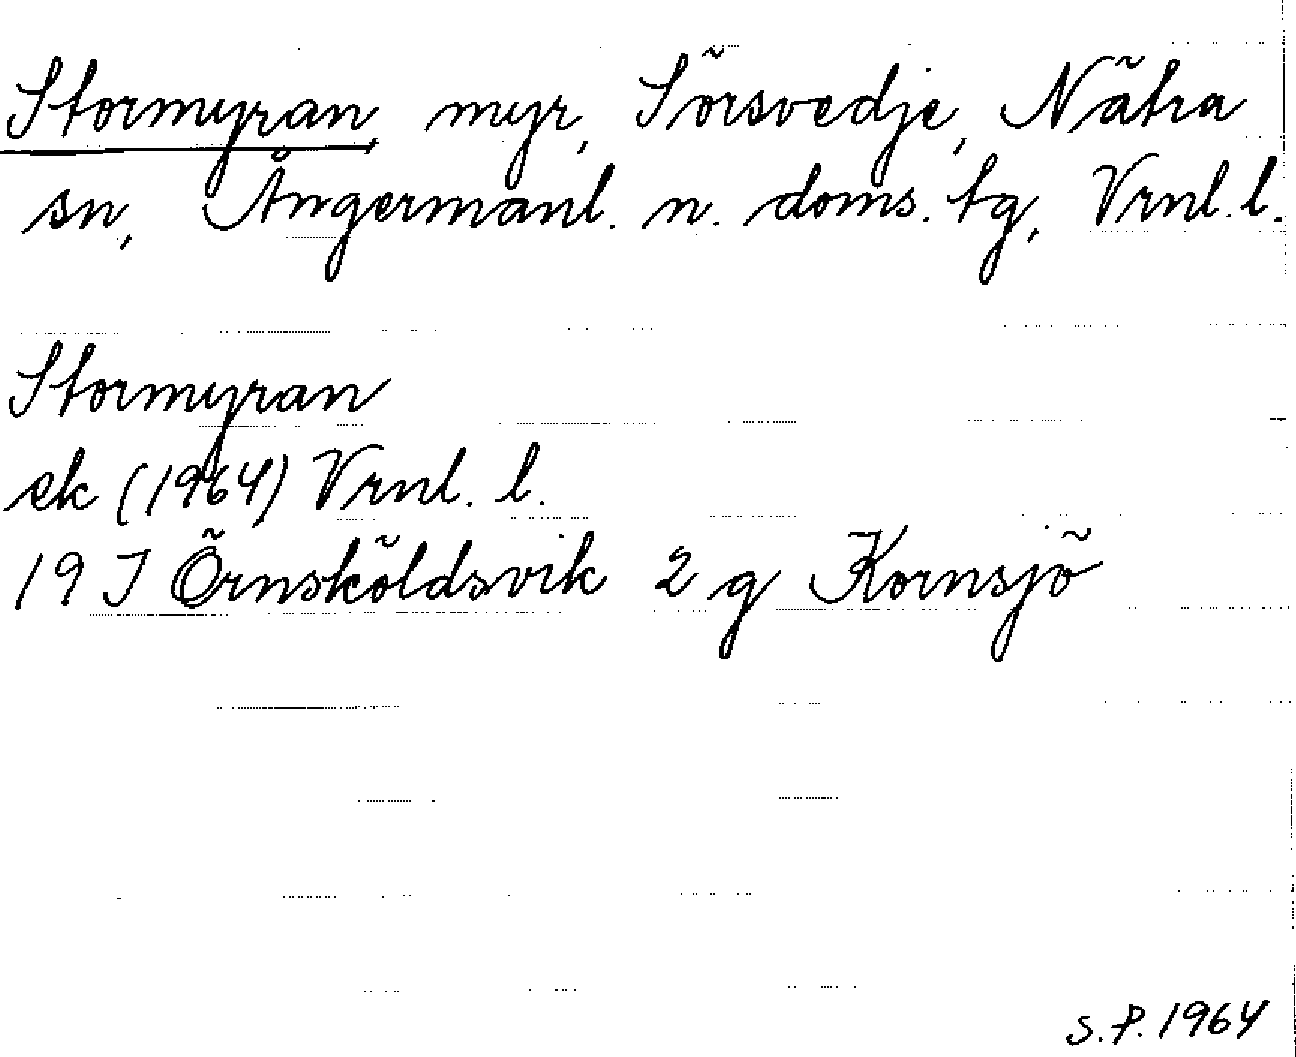 Stormyran, myr, Sörsvedje, Nätra
sn, Ångermanl. n. doms. tg, Vrnl. l.
Stormyran
ek (1964) Vrnl. l.
19 I Örnsköldsvik 2 g Kornsjö
S.P. 1964